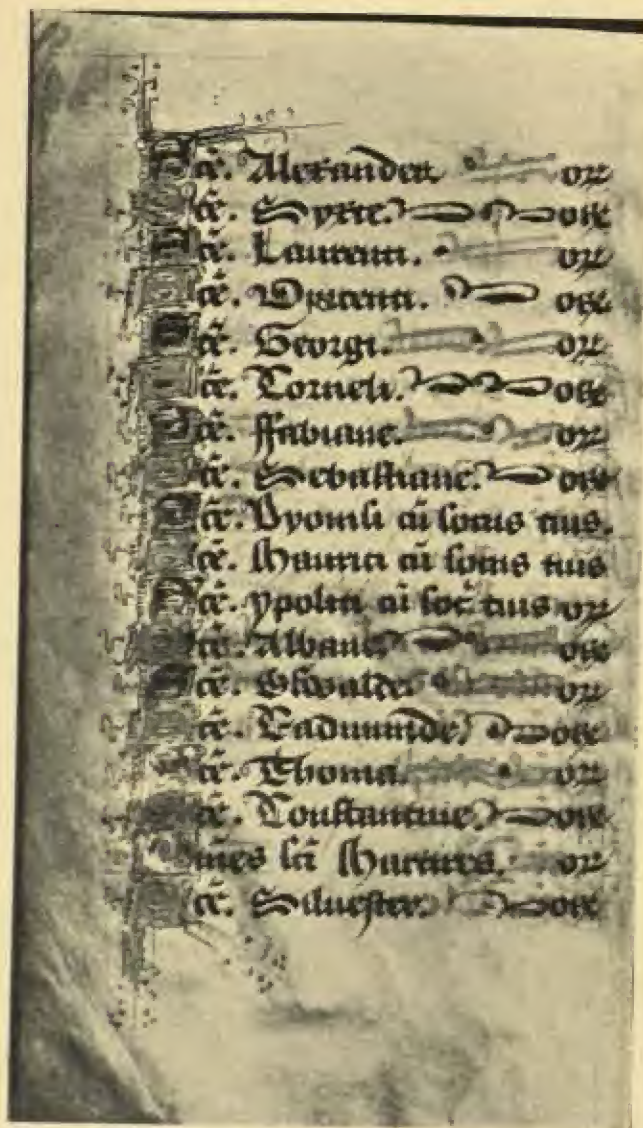 Scē. Alexander or
Scē. Syxte. ore
Scē. Laurenti. or
Scē. Vincenti. ore
Scē. Georgi. or
Scē. Corneli. ore
Scē. ffabiane. or
Scē. Sebastiane. ore
Scē. Dyonisi cū socus tuis.
Scē. Maurici cū socus tuis
Scē. ypoliti cū soc̄ tuis or
Scē. Albane. ore
Scē. Oswalde or
Scē. Eadmunde. ore
Scē. Thoma. or
Scē. Constantine. ore
Omēs sc̄i Martires. or
Scē. Siluester. ore